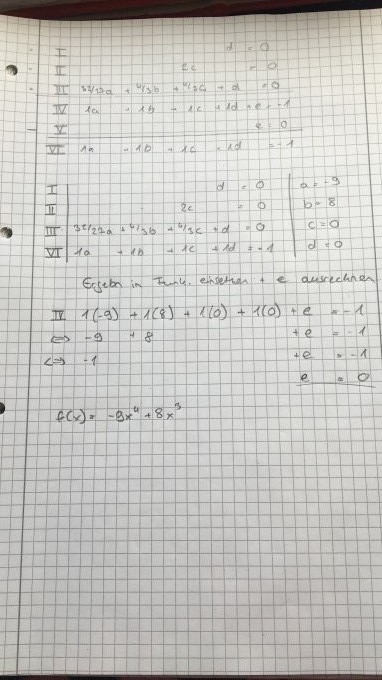 I d = 0
II 2c = 0
III 32/27a + 4/3b + 4/3c + d = 0
IV 1a + 1b + 1c + 1d + e = -1
V e = 0
VI 1a + 1b + 1c + 1d = -1
I d = 0 a = -9
II 2c = 0 b = 8
III 32/27a + 4/3b + 4/3c + d = 0 c = 0
VI 1a + 1b + 1c + 1d = -1 d = 0
Ergebn in Funk. einsetzen + e ausrechnen
IV 1(-9) + 1(8) + 1(0) + 1(0) + e = -1
<=> -9 + 8 + e = -1
<=> -1 + e = -1
e = 0
f(x) = -9x⁴ + 8x³